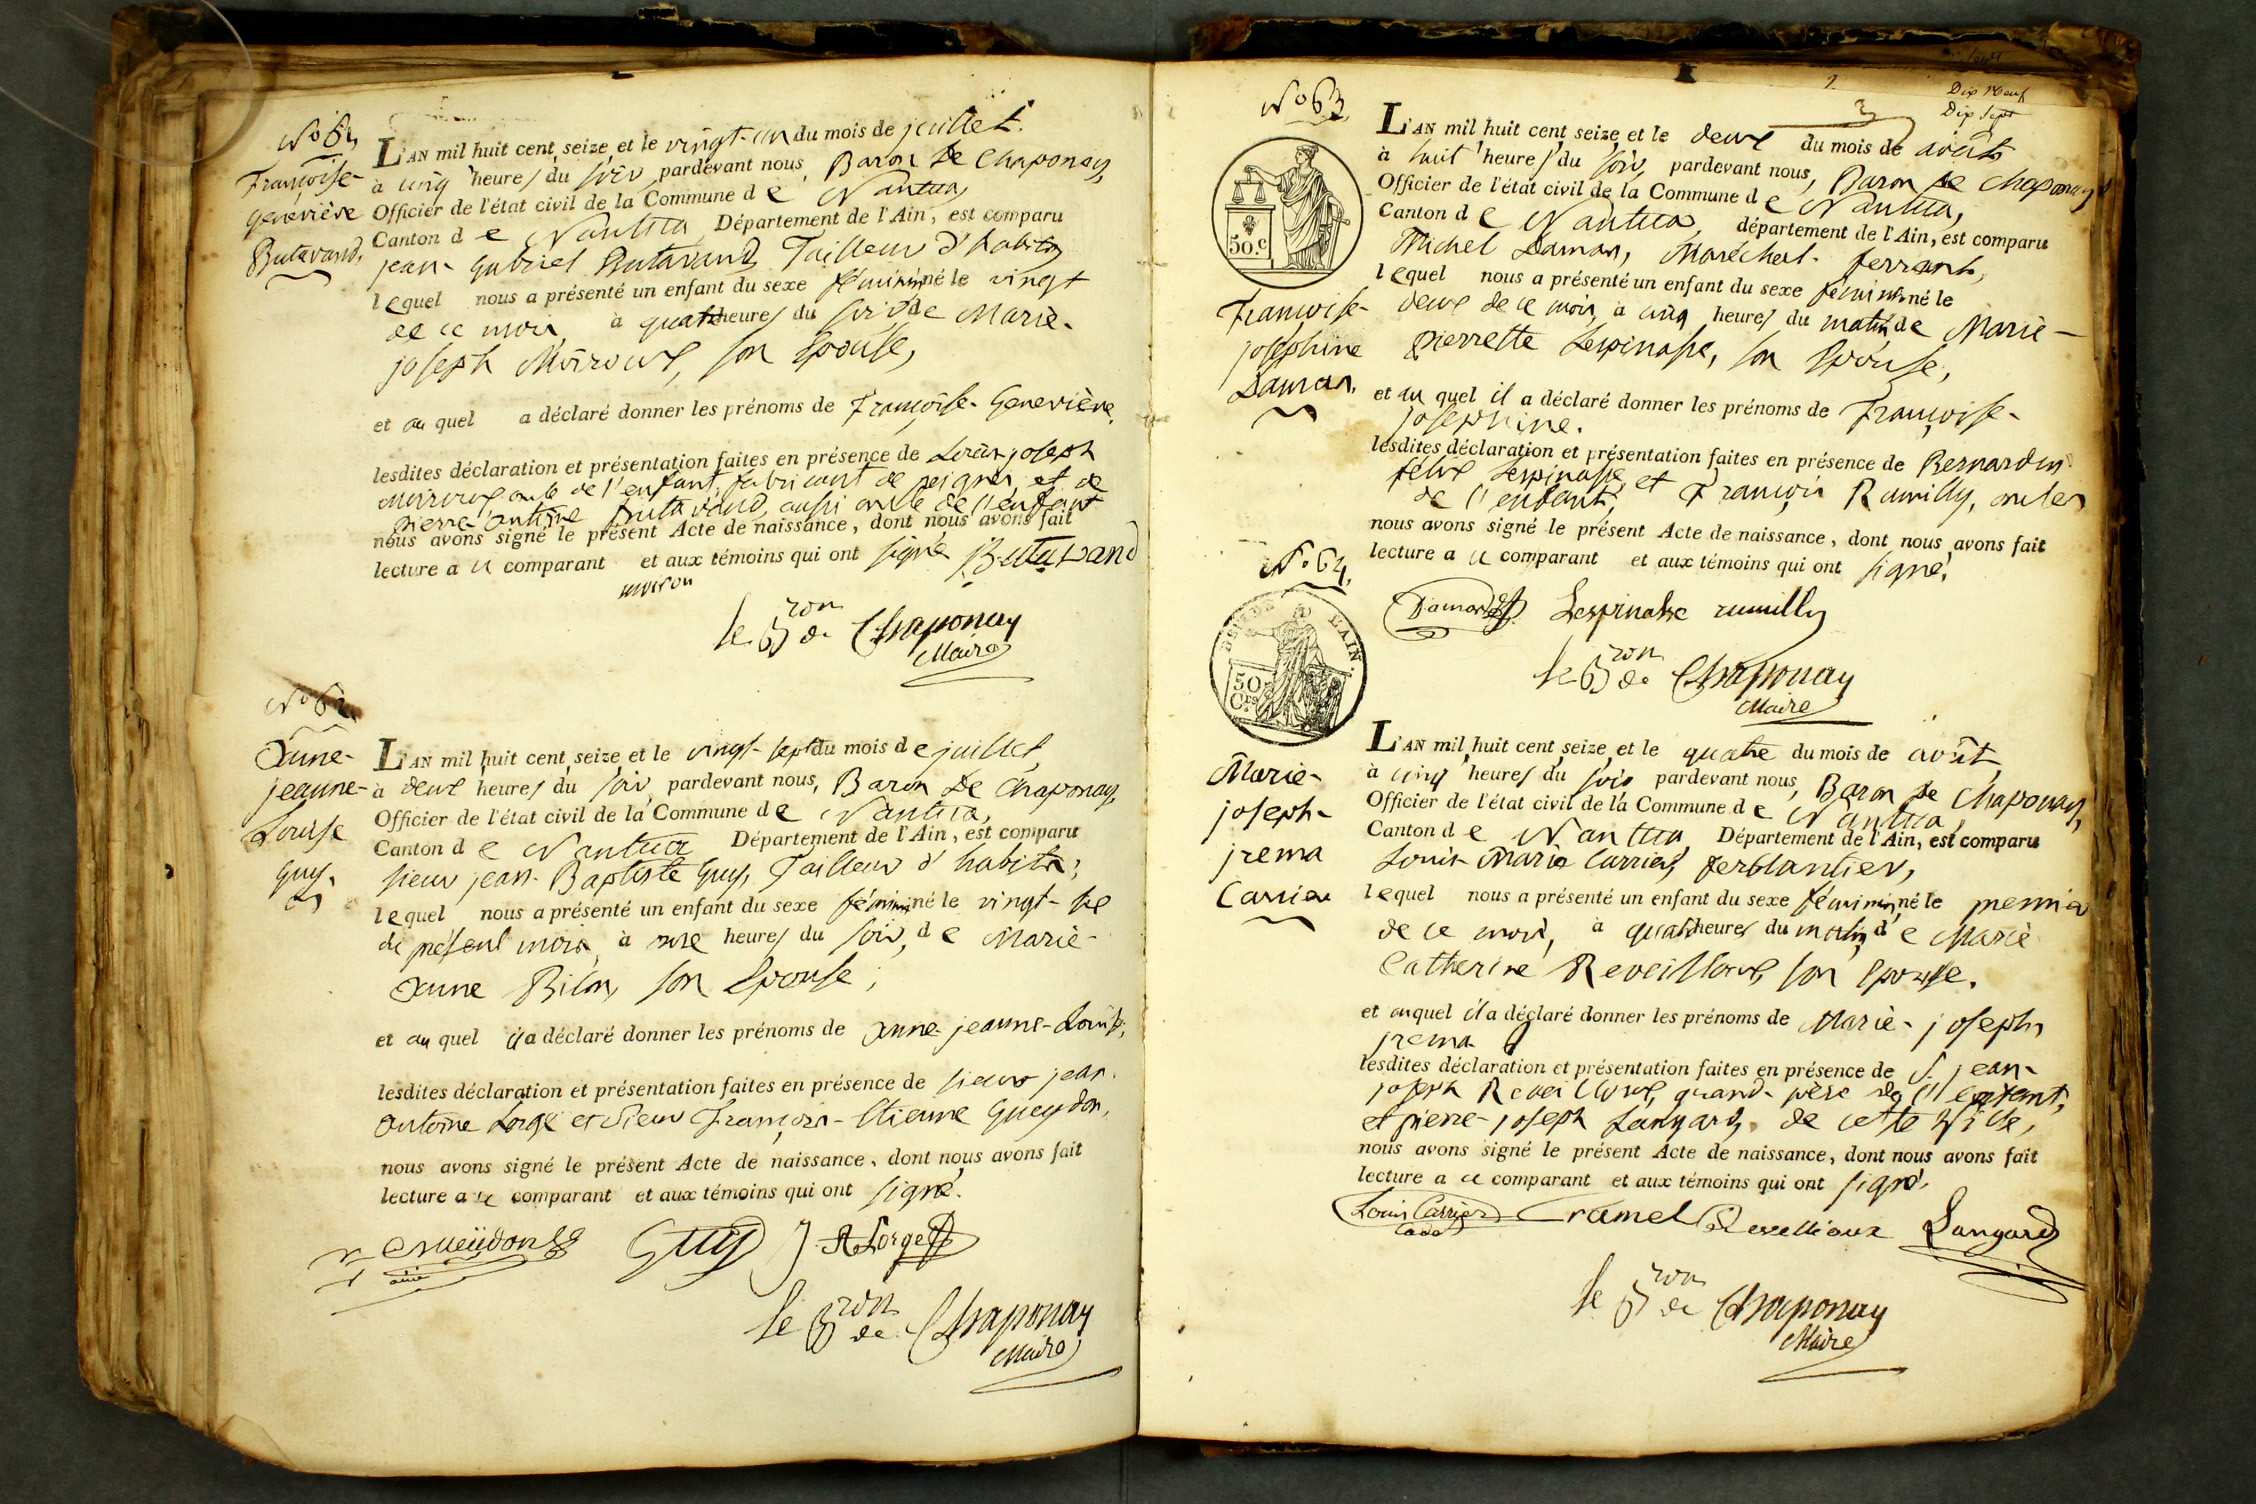 No 61
Françoise-
geneviève
Butavand.
L'AN mil huit cent seize et le vingt-un du mois de juillet.
à cinq heures du soir pardevant nous, Baron de Chaponay,
Officier de l'état civil de la Commune de Nantua,
Canton de Nantua Département de l'Ain, est comparu
jean-gabriel Butavand, Tailleur d'habits
lequel nous a présenté un enfant du sexe féminin né le vingt
de ce mois, à quatre heures du soir de Marie-
joseph Moiroux, son Epouse,
et au quel a déclaré donner les prénoms de Françoise-Geneviève,
lesdites déclaration et présentation faites en présence de Louis joseph
moiroux oncle de l'enfant, fabricant de peignes, et de
pierre antoine butavand, aussi oncle de l'enfant
nous avons signé le présent Acte de naissance, dont nous avons fait
lecture a ce comparant et aux témoins qui ont signé Butavand
moirou
le Bron de Chaponay
Maire
No 62
Anne-
jeanne-
Louise
Guy.
L'AN mil huit cent seize et le vingt-sept du mois de juillet,
à deux heures du soir, pardevant nous, Baron de Chaponay,
Officier de l'état civil de la Commune de Nantua,
Canton de Nantua Département de l'Ain, est comparu
sieur jean-Baptiste Guy, Tailleur d'habits,
lequel nous a présenté un enfant du sexe féminin né le vingt-six
du présent mois, à une heures du soir, de Marie-
Anne Bilon, son Epouse,
et au quel il a déclaré donner les prénoms de Anne-jeanne-Louise,
lesdites déclaration et présentation faites en présence de sieur jean
antoine Lorge et sieur François-Etienne Gueydon,
nous avons signé le présent Acte de naissance, dont nous avons fait
lecture a ce comparant et aux témoins qui ont signé.
Gueÿdon
ainé
Guy
J. A Lorge
le Bron de Chaponay
Maire
Dix Neuf
Dix sept
No 63.
50.c
Françoise-
josephine
Daman.
L'AN mil huit cent seize et le deux du mois de août
à huit heures du soir, pardevant nous, Baron de Chaponay,
Officier de l'état civil de la Commune de Nantua,
Canton de Nantua, département de l'Ain, est comparu
Michel Daman, Maréchal-ferrant,
lequel nous a présenté un enfant du sexe féminin né le
deux de ce mois, à cinq heures du matin de Marie-
pierrette Lespinasse, son Epouse,
et au quel il a déclaré donner les prénoms de Françoise-
josephine.
lesdites déclaration et présentation faites en présence de Bernardin
félix Lespinasse, et François Rumilly, oncles
de l'enfant,
nous avons signé le présent Acte de naissance, dont nous avons fait
lecture a ce comparant et aux témoins qui ont signé.
Daman Lespinasse rumilly
le Bron de Chaponay
Maire
No 64.
L'AIN.
50
Ces
Marie-
joseph-
jrema
Carrier
L'AN mil huit cent seize et le quatre du mois de août
à cinq heures du soir pardevant nous, Baron de Chaponay,
Officier de l'état civil de la Commune de Nantua,
Canton de Nantua Département de l'Ain, est comparu
Louis Marie Carrier, ferblantier,
lequel nous a présenté un enfant du sexe féminin, né le premier
de ce mois, à quatre heures du matin, de Marie
Catherine Reveilloux, son Epouse.
et auquel il a déclaré donner les prénoms de Marie-joseph
jrema
lesdites déclaration et présentation faites en présence de S. jean-
joseph Reveilloux, grand-père de l'enfant,
et pierre-joseph Langard, de cette Ville,
nous avons signé le présent Acte de naissance, dont nous avons fait
lecture a ce comparant et aux témoins qui ont signé.
Louis Carrier
Cadet
Cramel
Revellioux
Langard
le Bron de Chaponay
Maire